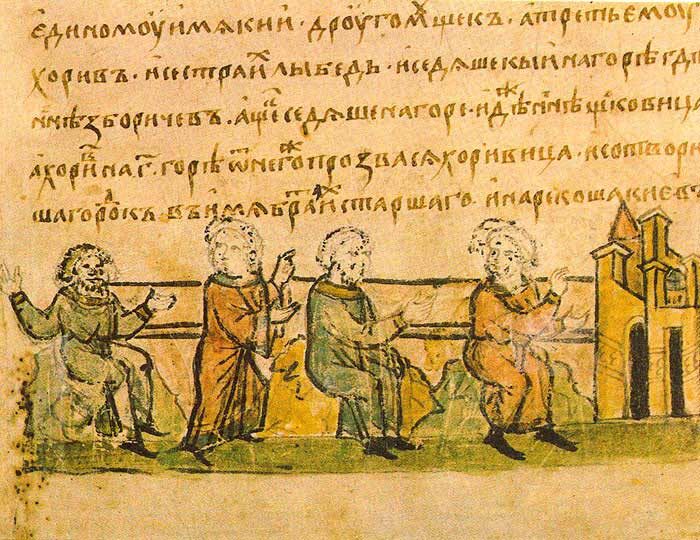 единомоу имѧ кии · дроугомⷹ щекъ · а третьемоу
хоривъ · и сестра иⷯ лыбедь · и седѧше кыи на горѣ гдѣ
нн҃ѣ зборичевъ · а щеⷦ седѧше на горе · идѣⷤ нн҃ѣ щековица
а хориⷡ на г҃ горѣ ѿ негоⷤ прозвасѧ хоривица · и сотвори
ша городокъ въ имѧ браⷮ иⷯ старшаго и нарекоша киевъ